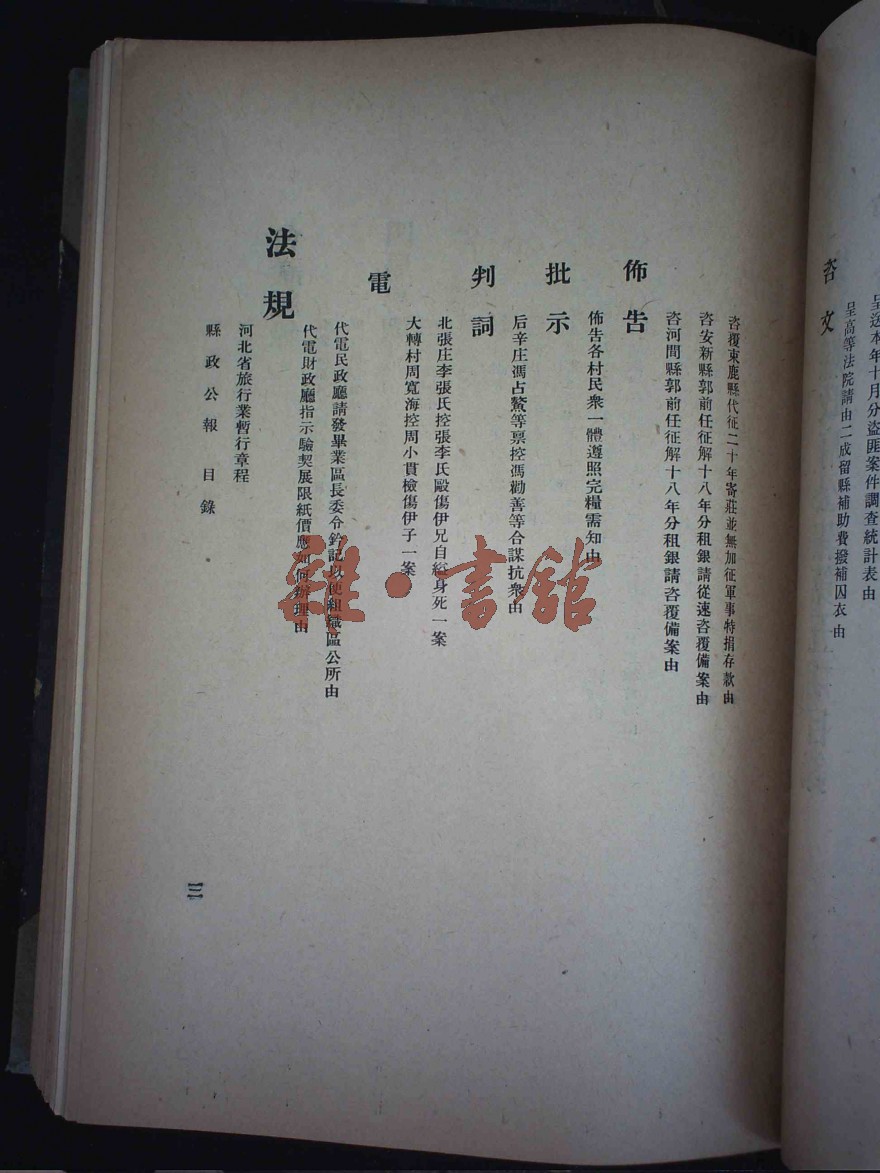 呈送本年十月分盜匪案件調查統計表由
呈高等法院請由二成留縣補助費撥補囚衣由
咨文
咨覆束鹿縣代征二十年寄莊並無加征軍事特捐存款由
咨安新縣郭前任征解十八年分租銀請從速咨覆備案由
咨河間縣郭前任征解十八年分租銀請咨覆備案由
佈告
佈告各村民衆一體遵照完糧需知由
批示
后辛庄馮占鰲等禀控馮勸善等合謀抗衆由
判詞
北張庄李張氏控張李氏毆傷伊兄自縊身死一案
大轉村周寬海控周小貫檢傷伊子一案
電
代電民政廳請發畢業區長委令鈐記以便組織區公所由
代電財政廳指示驗契展限紙價應如何辦理由
法規
河北省旅行業暫行章程
縣政公報 目錄
三
雜·書館